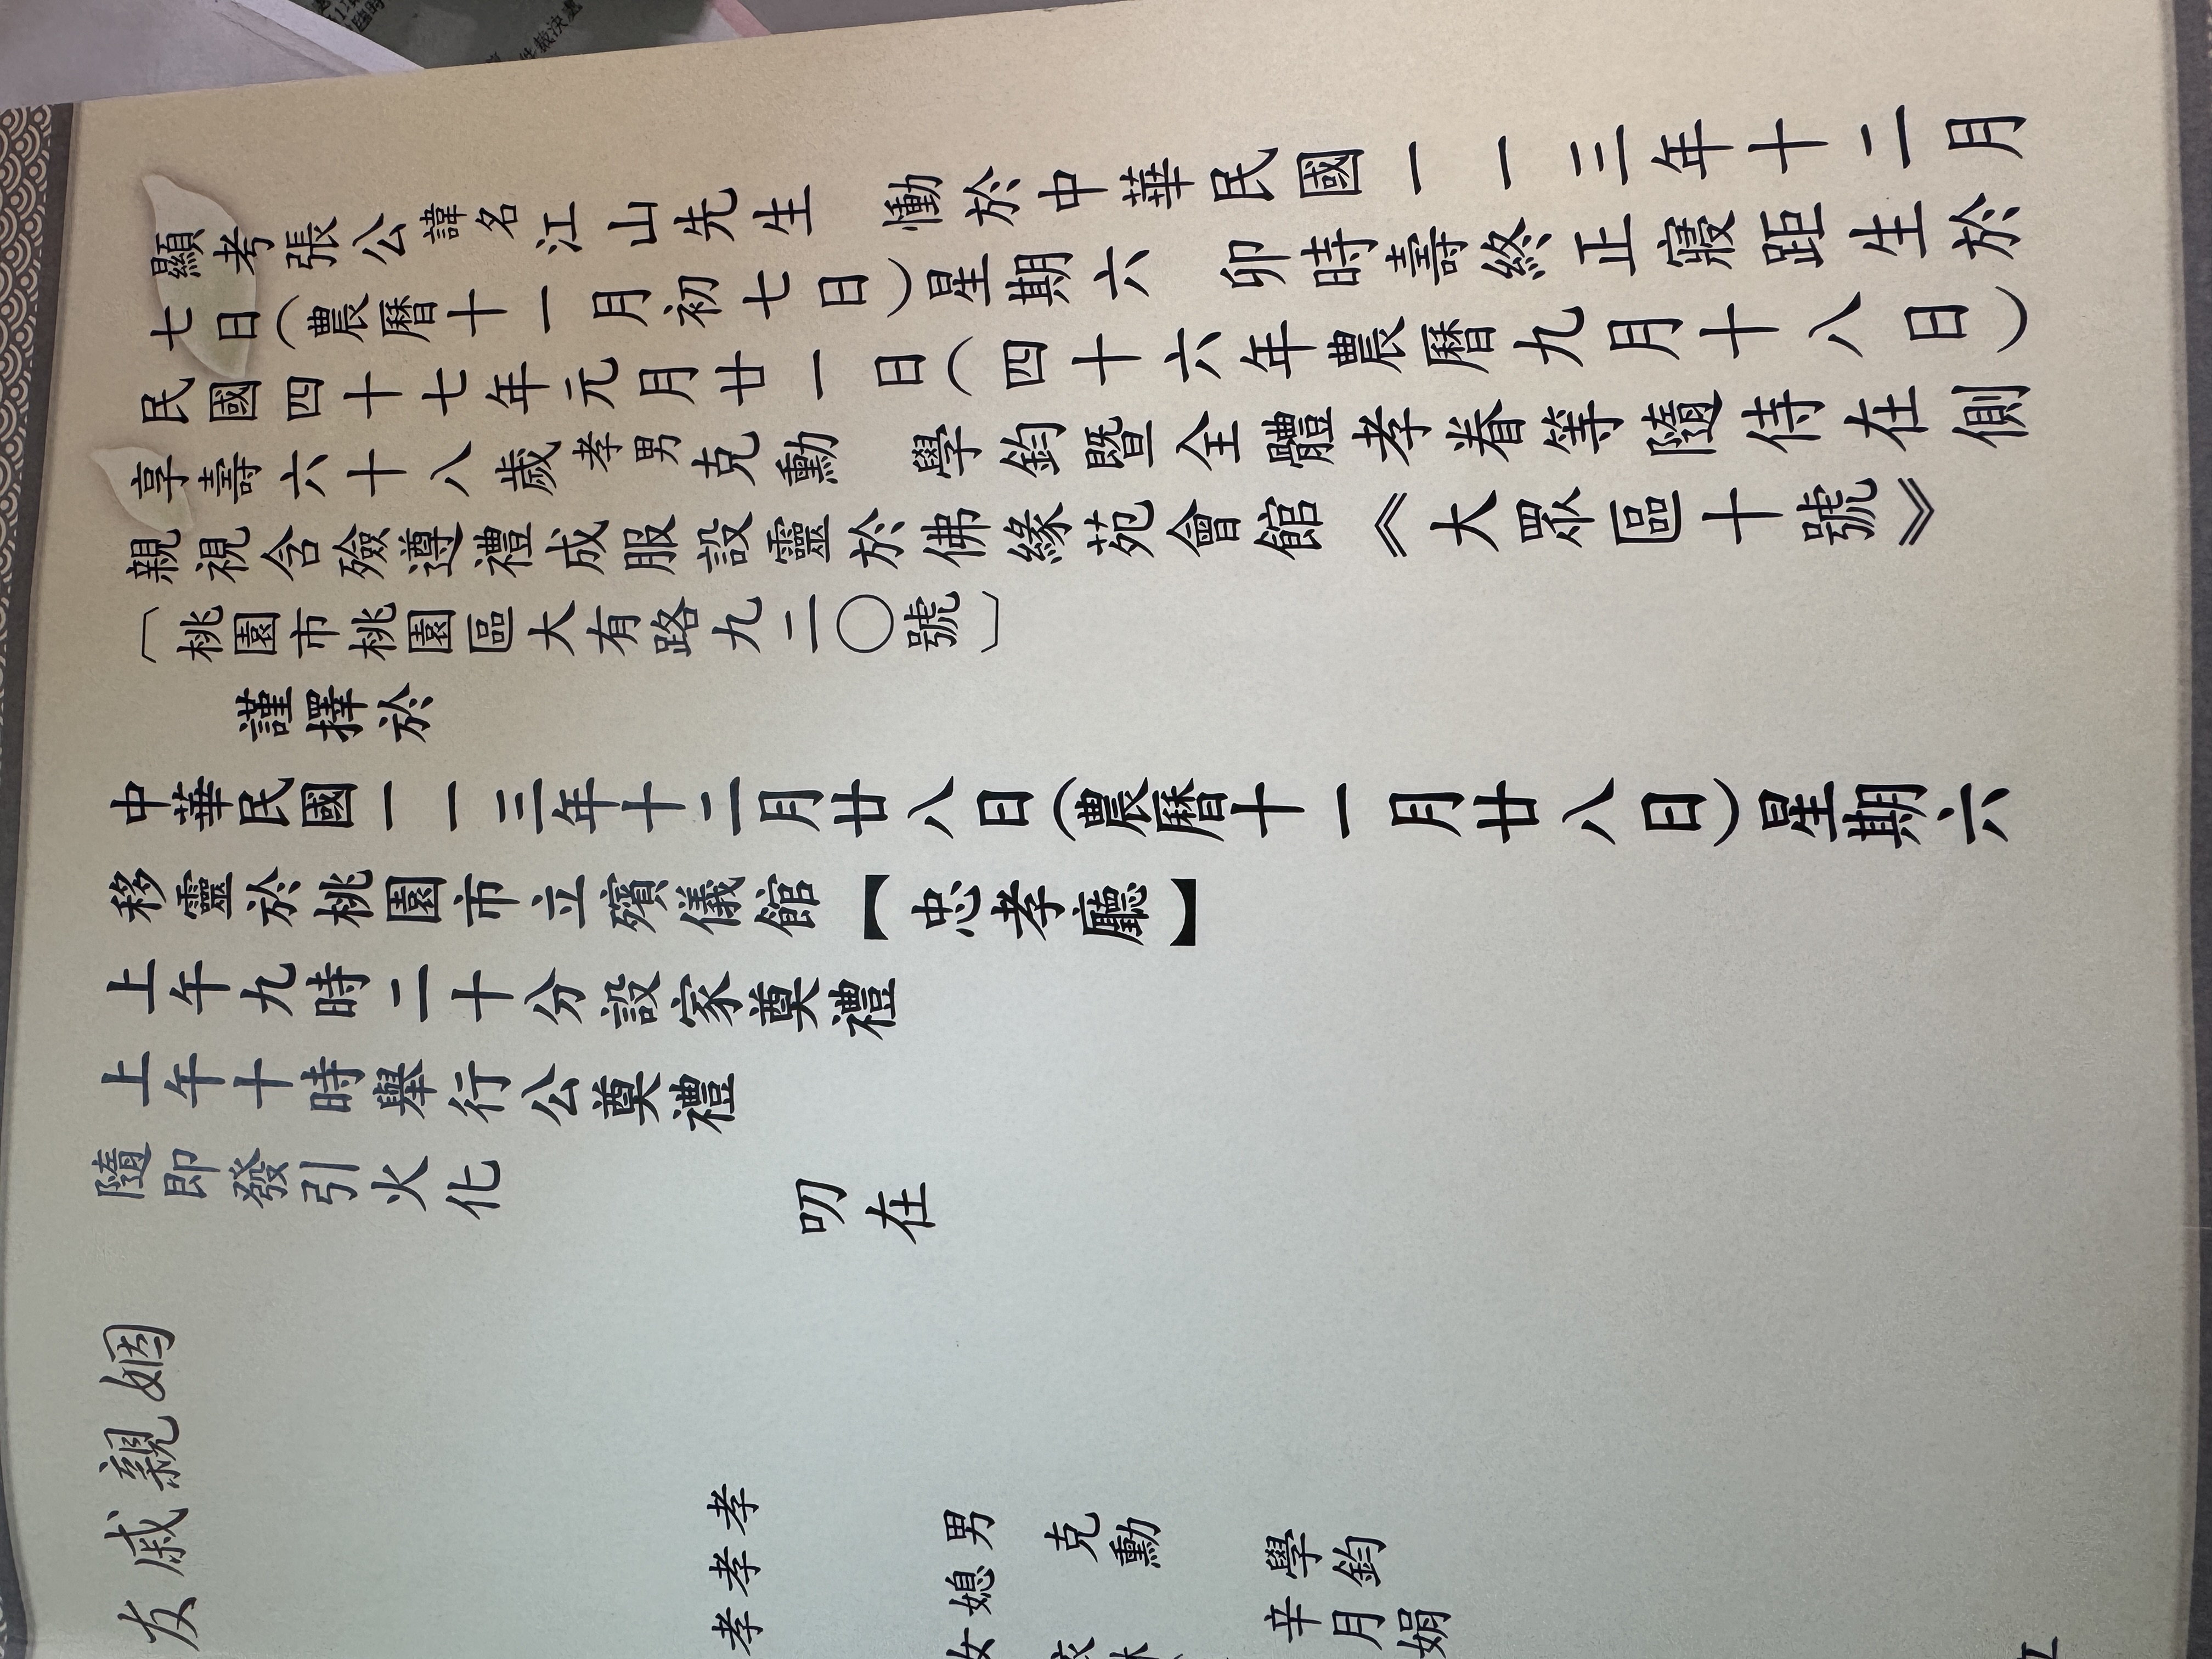 顯考張公諱名江山先生 慟於中華民國一一三年十二月
七日(農曆十一月初七日)星期六 卯時壽終正寢距生於
民國四十七年元月廿一日(四十六年農曆九月十八日)
享壽六十八歲孝男克勳 學鈞暨全體孝眷等隨侍在側
親視含殮遵禮成服設靈於佛緣苑會館《大眾區十號》
〔桃園市桃園區大有路九二〇號〕
謹擇於
中華民國一一三年十二月廿八日(農曆十一月廿八日)星期六
移靈於桃園市立殯儀館【忠孝廳】
上午九時二十分設家奠禮
上午十時舉行公奠禮
隨即發引火化
叨在
姻
親
戚
友
孝男 克勳 學鈞
孝媳 辛月娟
孝女